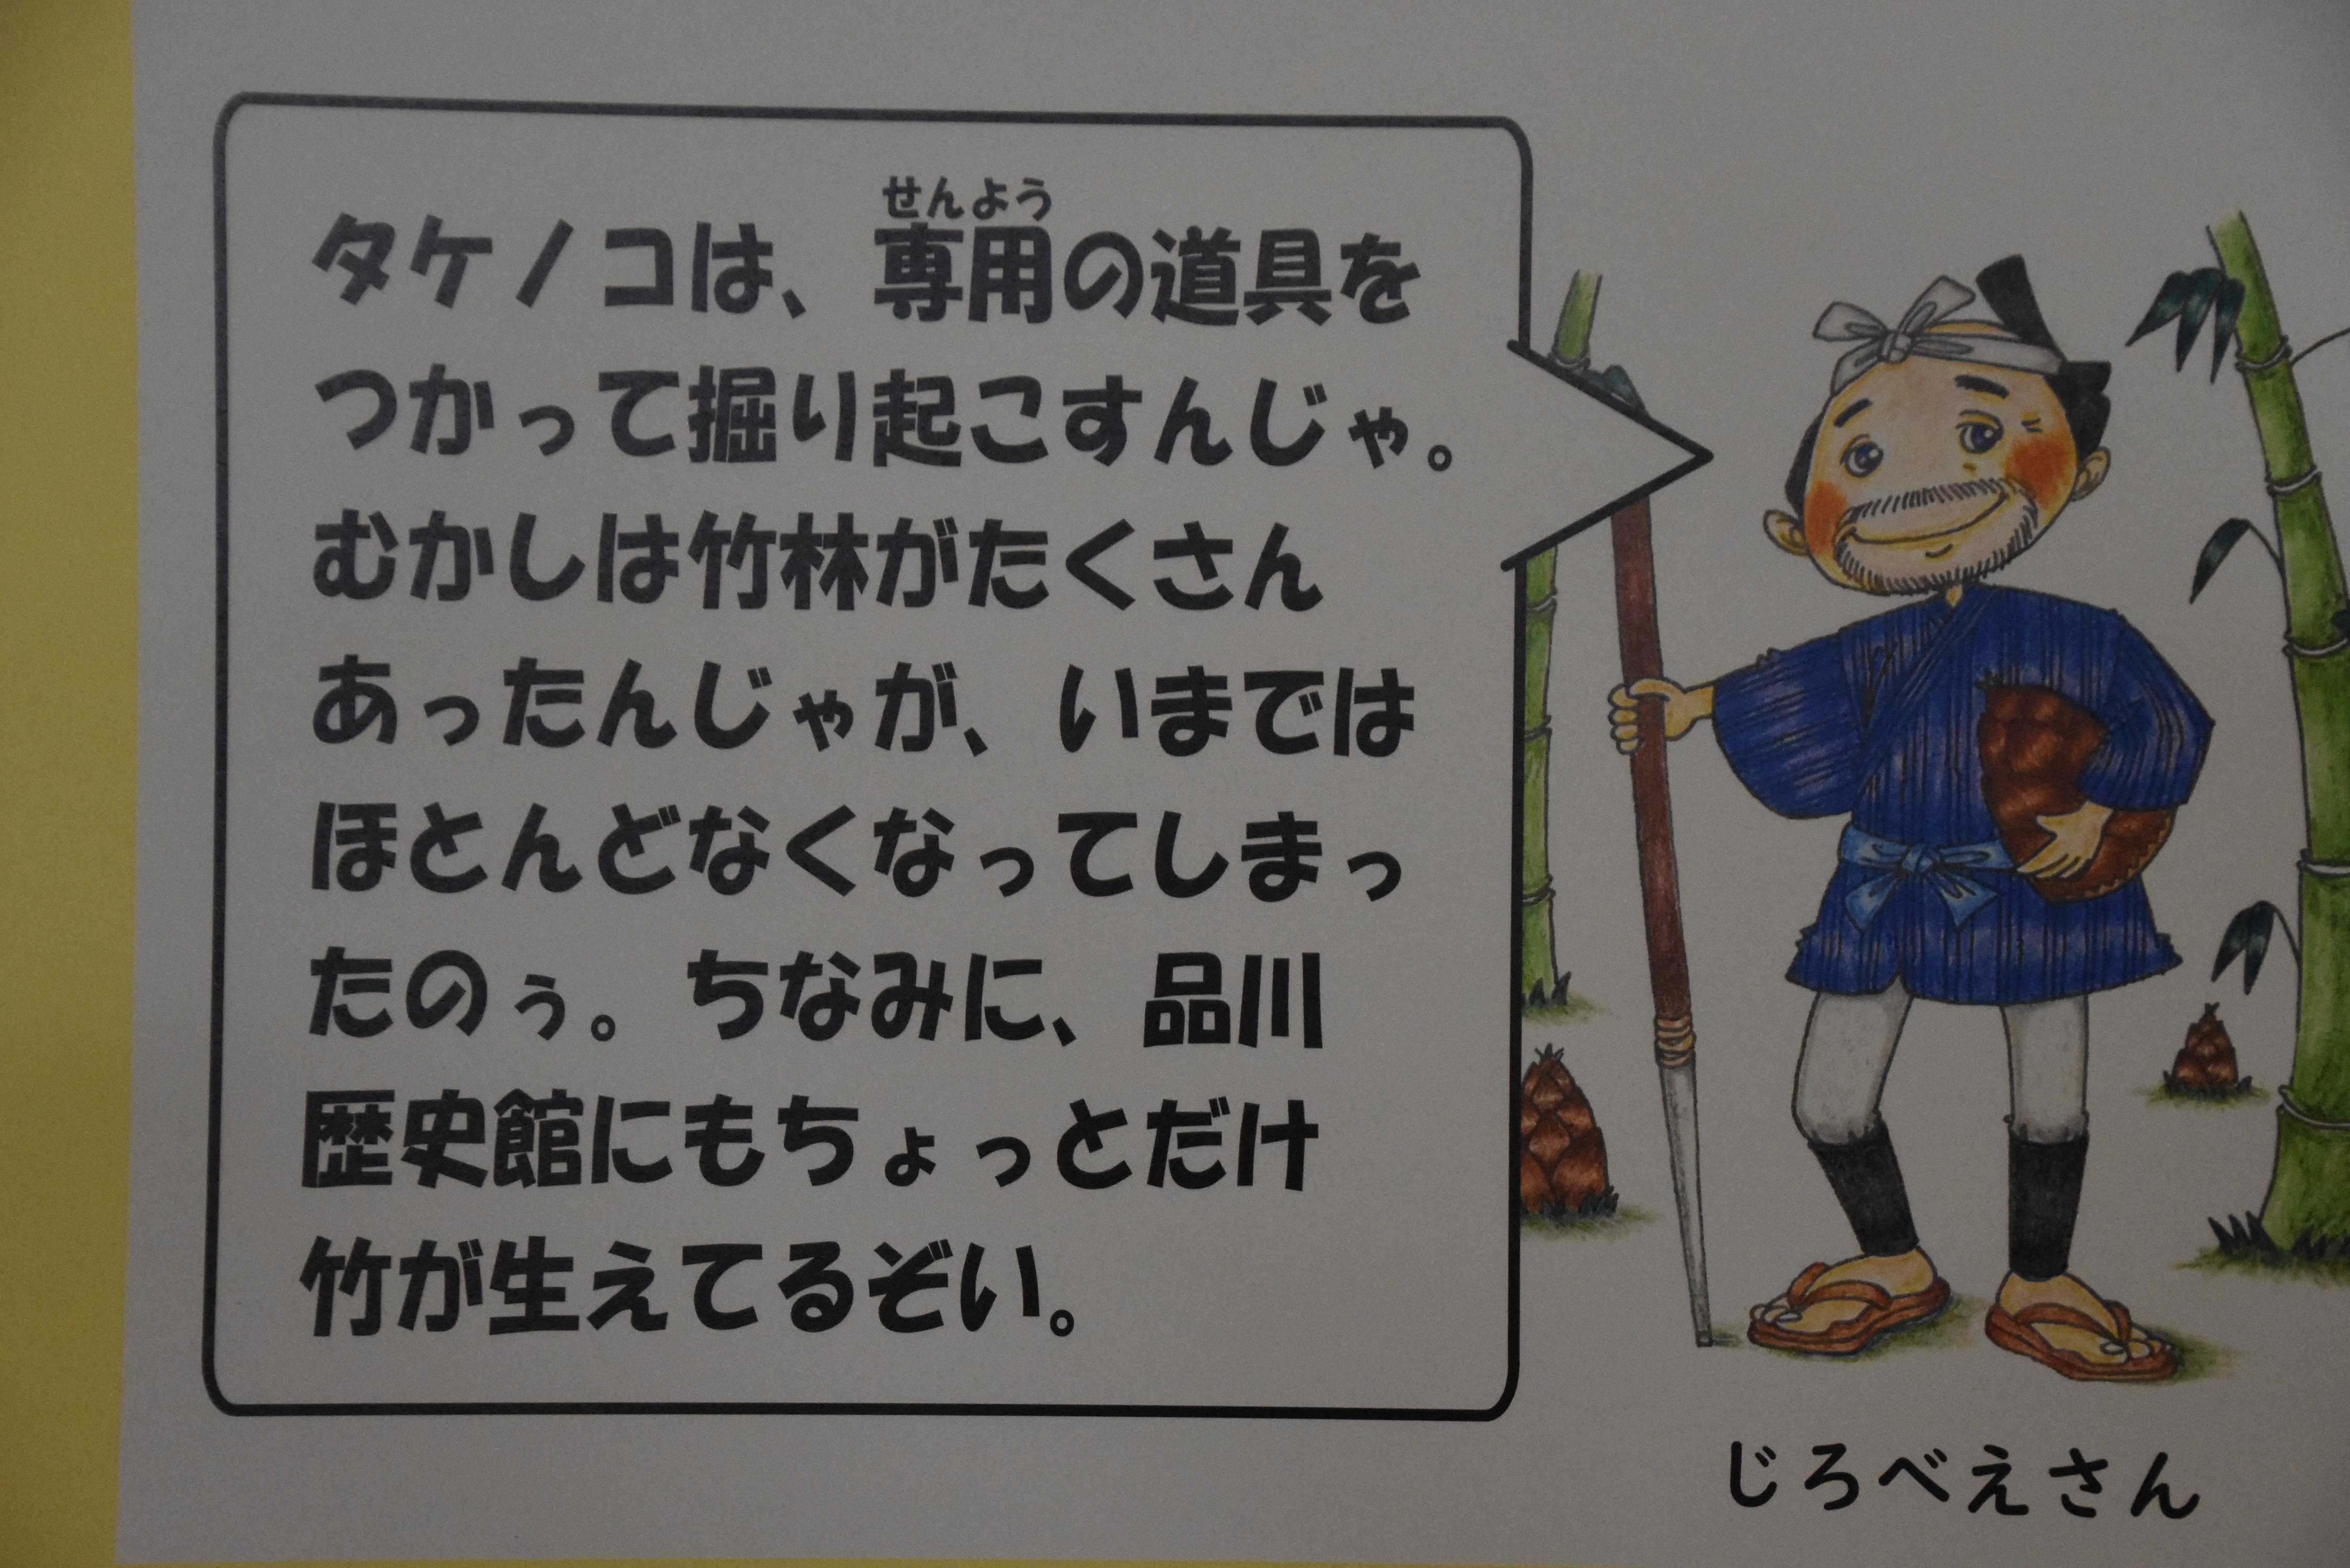 せんよう
タケノコは、専用の道具を
つかって掘り起こすんじゃ。
むかしは竹林がたくさん
あったんじゃが、いまでは
ほとんどなくなってしまっ
たのぅ。ちなみに、品川
歴史館にもちょっとだけ
竹が生えてるぞい。
じろべえさん